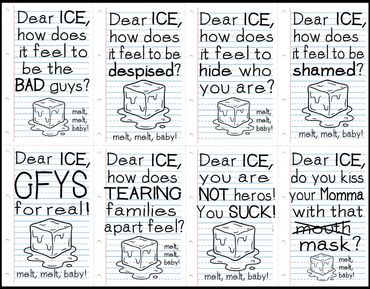 Dear ICE,
how does
it feel to
be the
BAD guys?
melt,
melt,
baby!
Dear ICE,
how does
it feel to be
despised?
melt, melt, baby!
Dear ICE,
how does
it feel to
hide who
you are?
melt,
melt,
baby!
Dear ICE,
how does
it feel to be
shamed?
melt, melt, baby!
Dear ICE,
GFYS
for real!
melt, melt, baby!
Dear ICE,
how does
TEARING
families
apart feel?
melt,
melt,
baby!
Dear ICE,
you are
NOT heros!
You SUCK!
melt, melt, baby!
Dear ICE,
do you kiss
your Momma
with that
mouth
mask?
melt,
melt,
baby!